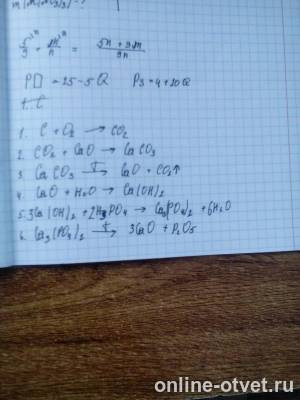 5/9 + m/n = 5n + 9m / 9n
= 25-5Q P3 = 4 + 20Q
1. C + O₂ → CO₂
2. CO₂ + CaO → CaCO₃
3. CaCO₃ → CaO + CO₂↑
4. CaO + H₂O → Ca(OH)₂
5. 3Ca(OH)₂ + 2H₃PO₄ → Ca₃(PO₄)₂ + 6H₂O
6. Ca₃(PO₄)₂ → 3CaO + P₂O₅
online-otvet.ru